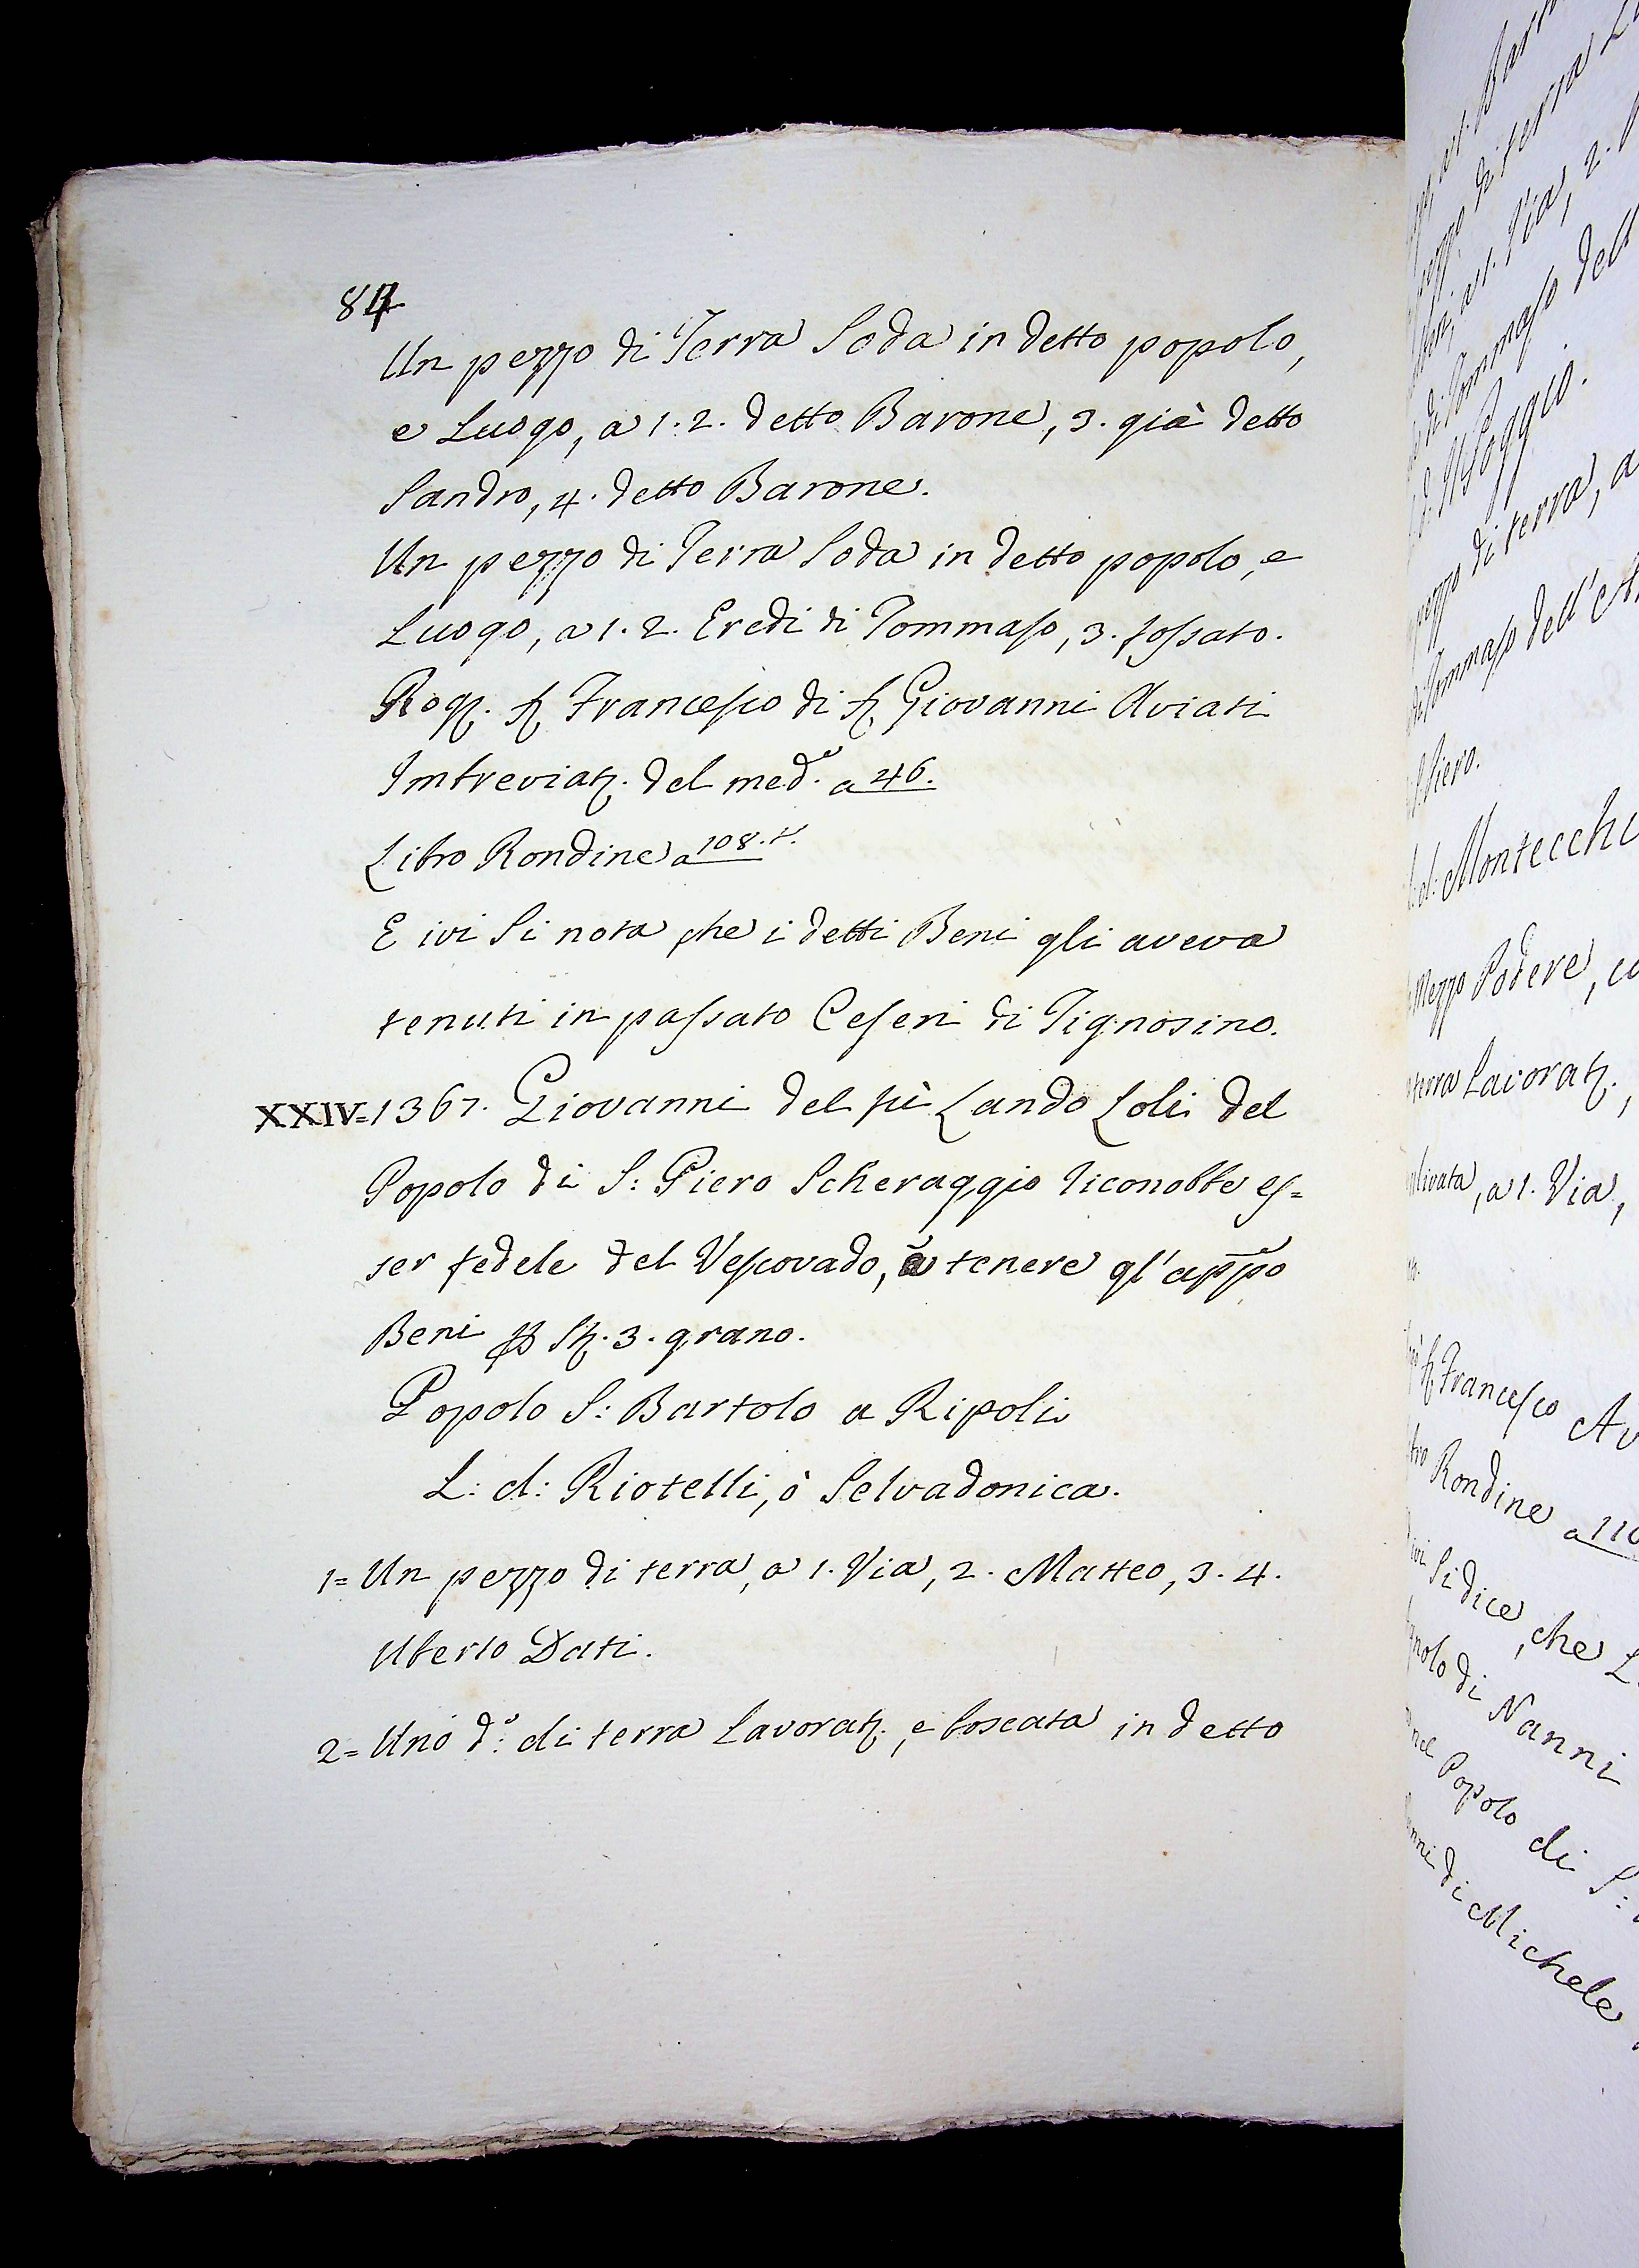 84
Un pezzo di Terra Soda in detto popolo,
e Luogo, a 1. 2. detto Barone, 3. già detto
Sandro, 4. detto Barone.
Un pezzo di Terra Soda in detto popolo, e
Luogo, a 1. 2. Eredi di Tommaso, 3. fossato.
Rog. S. Francesco di S. Giovanni Aviati
Imbreviat. del med.º a 46.
Libro Rondine a 108. t.
E ivi Si nota che i detti Beni gli aveva
tenuti in passato Ceseri di Tignosino.
XXIV=1367. Giovanni del fù Lando Loli del
Popolo di S: Piero Scheraggio riconobbe es=
ser fedele del Vescovado, a tenere gl'appo
Beni p St. 3. grano.
Popolo S: Bartolo a Ripoli
L: d: Riotelli, ò Selvadonica.
1= Un pezzo di terra, a 1. Via, 2. Matteo, 3. 4.
Uberto Dati.
2= Uno d.º di terra Lavorat. e boscata in detto
Poggio.
pezzo di terra, a
Tommaso dell'
Piero.
d: Montecchi
Mezzo Podere, co
terra Lavorat.,
olivata, a 1. Via,
S. Francesco Av
Rondine a 110
ivi Si dice, che L
di Nanni
Popolo di S:
di Michele